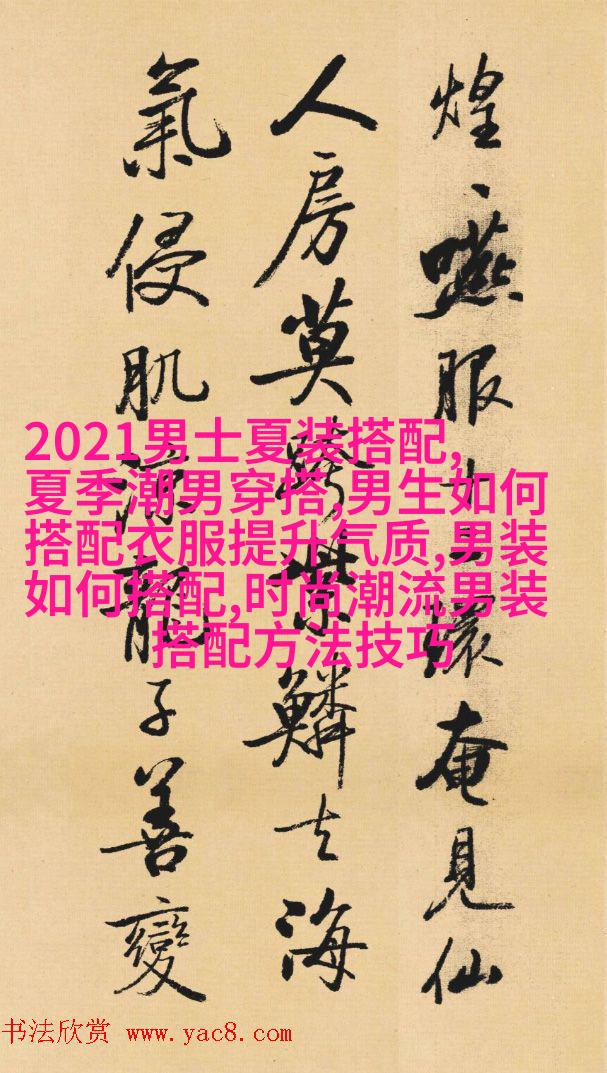 煌、嚥服十二環奄見仙
人房莫驚紫鱗去海
氣侵肌涼龍子善變
2021男士夏装搭配,
夏季潮男穿搭,男生如何
搭配衣服提升气质,男装
如何搭配,时尚潮流男装
搭配方法技巧
书法欣赏 www.yac8.com